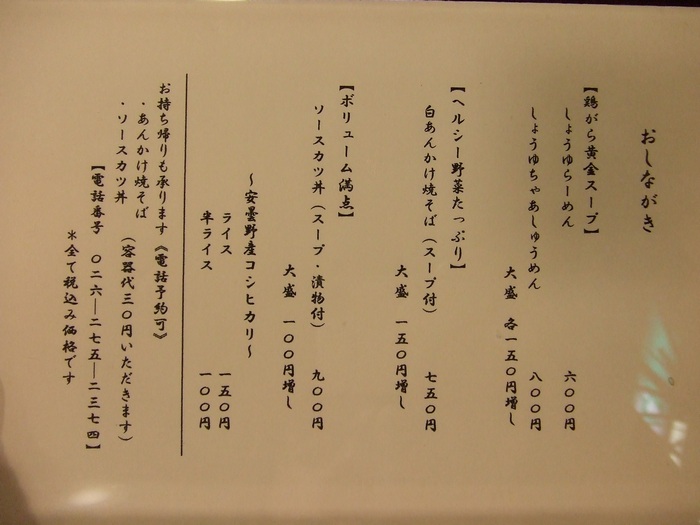 おしながき
【鶏がら黄金スープ】
しょうゆらーめん　六〇〇円
しょうゆちゃあしゅうめん　八〇〇円
大盛　各一五〇円増し
【ヘルシー野菜たっぷり】
白あんかけ焼そば（スープ付）　七五〇円
大盛　一五〇円増し
【ボリューム満点】
ソースカツ丼（スープ・漬物付）　九〇〇円
大盛　一〇〇円増し
～安曇野産コシヒカリ～
ライス　一五〇円
半ライス　一〇〇円
お持ち帰りも承ります《電話予約可》
・あんかけ焼そば
・ソースカツ丼　（容器代三〇円いただきます）
【電話番号　〇二六―二七五―二三七四】
＊全て税込み価格です